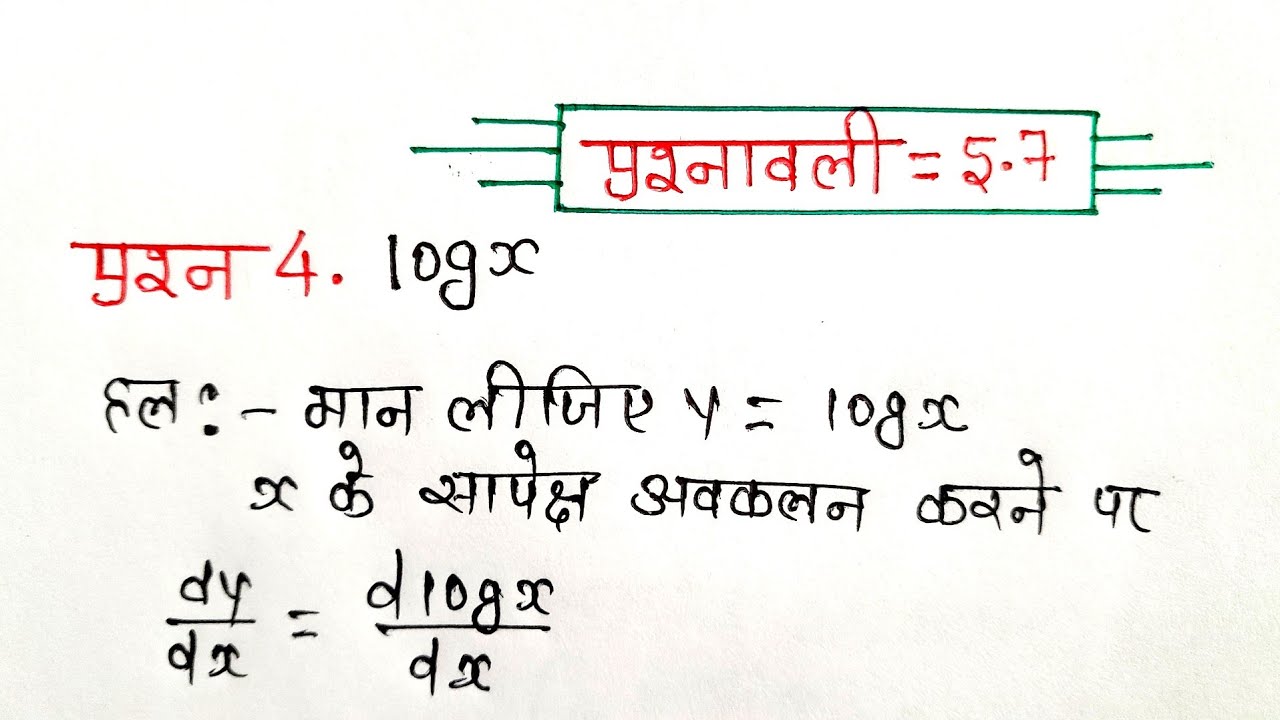 प्रश्नावली = 5.7
प्रश्न 4. logx
हल: - मान लीजिए y = logx
x के सापेक्ष अवकलन करने पर
dy/dx = dlogx/dx